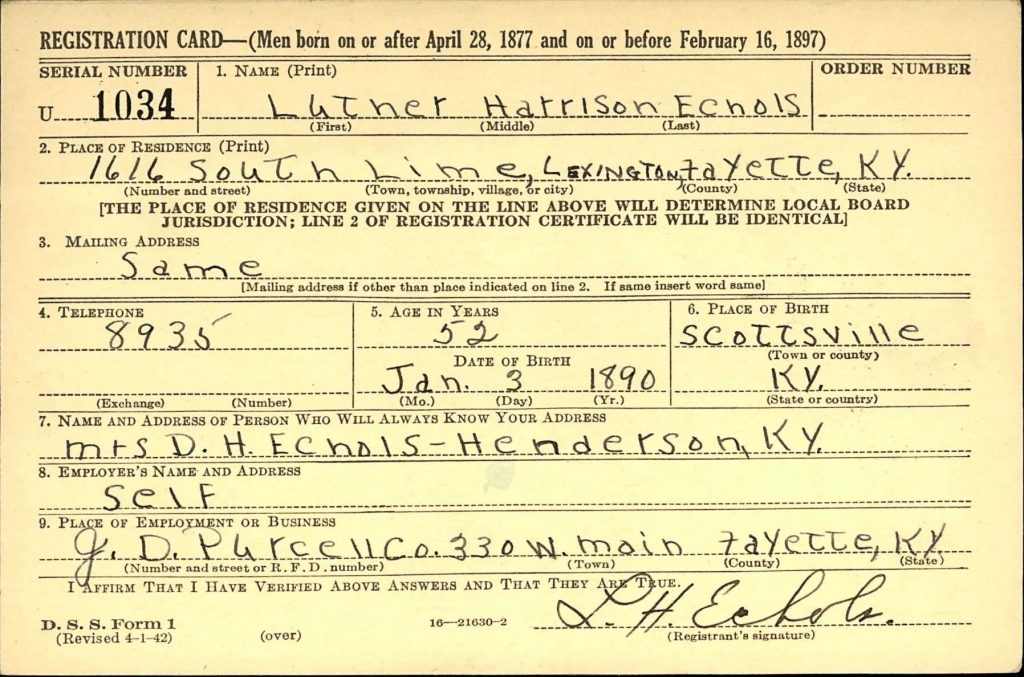 REGISTRATION CARD—(Men born on or after April 28, 1877 and on or before February 16, 1897)
SERIAL NUMBER 1. NAME (Print) ORDER NUMBER
U 1034 Luther Harrison Echols
(First) (Middle) (Last)
2. PLACE OF RESIDENCE (Print)
1616 South Lime, LEXINGTON Fayette, KY.
(Number and street) (Town, township, village, or city) (County) (State)
[THE PLACE OF RESIDENCE GIVEN ON THE LINE ABOVE WILL DETERMINE LOCAL BOARD
JURISDICTION; LINE 2 OF REGISTRATION CERTIFICATE WILL BE IDENTICAL]
3. MAILING ADDRESS
Same
[Mailing address if other than place indicated on line 2. If same insert word same]
4. TELEPHONE 5. AGE IN YEARS 6. PLACE OF BIRTH
8935 52 Scottsville
(Town or county)
DATE OF BIRTH
Jan. 3 1890 KY.
(Exchange) (Number) (Mo.) (Day) (Yr.) (State or country)
7. NAME AND ADDRESS OF PERSON WHO WILL ALWAYS KNOW YOUR ADDRESS
mrs D. H. Echols-Henderson, KY.
8. EMPLOYER'S NAME AND ADDRESS
Self
9. PLACE OF EMPLOYMENT OR BUSINESS
J. D. Purcell Co. 330 W. main Fayette, KY.
(Number and street or R. F. D. number) (Town) (County) (State)
I AFFIRM THAT I HAVE VERIFIED ABOVE ANSWERS AND THAT THEY ARE TRUE.
L. H. Echols.
D. S. S. Form 1 16—21630-2
(Revised 4-1-42) (over) (Registrant's signature)